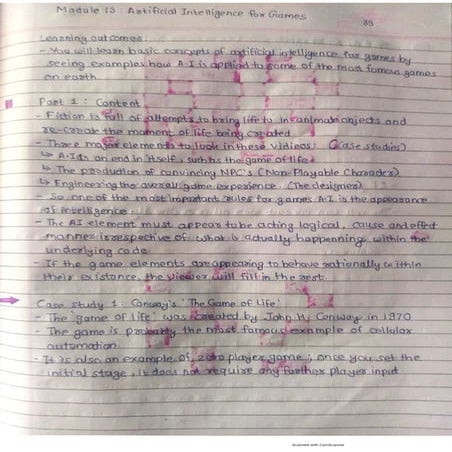 Module 13 : Artificial Intelligence for Games
39
Learning outcomes:
- You will learn basic concepts of artificial intelligence for games by
seeing examples how A.I is applied to some of the most famous games
on earth.
Part 1 : Content
- Fiction is full of attempts to bring life to inanimate objects and
re-create the moment of life being created
- Three major elements to look in these videos! (case studies)
↳ A.I as an end in itself, such as the game of life.
↳ The production of convincing NPC's (Non-Playable Characters)
↳ Engineering the overall game experience. (The designers).
- So one of the most important rules for games A.I is the appearance
of intelligence.
- The AI element must appear to be acting logical, cause and effect
manner irrespective of what is actually happenning within the
underlying code.
- If the game elements are appearing to behave rationally within
their existance, the viewer will fill in the rest.
Case Study 1 : Conway's 'The Game of Life'
- The 'game of life' was created by John H. Conway in 1970
- The game is probably the most famous example of cellular
automation.
- It is also an example of zero player game; once you set the
initial stage, it does not require any further player input
Scanned with CamScanner